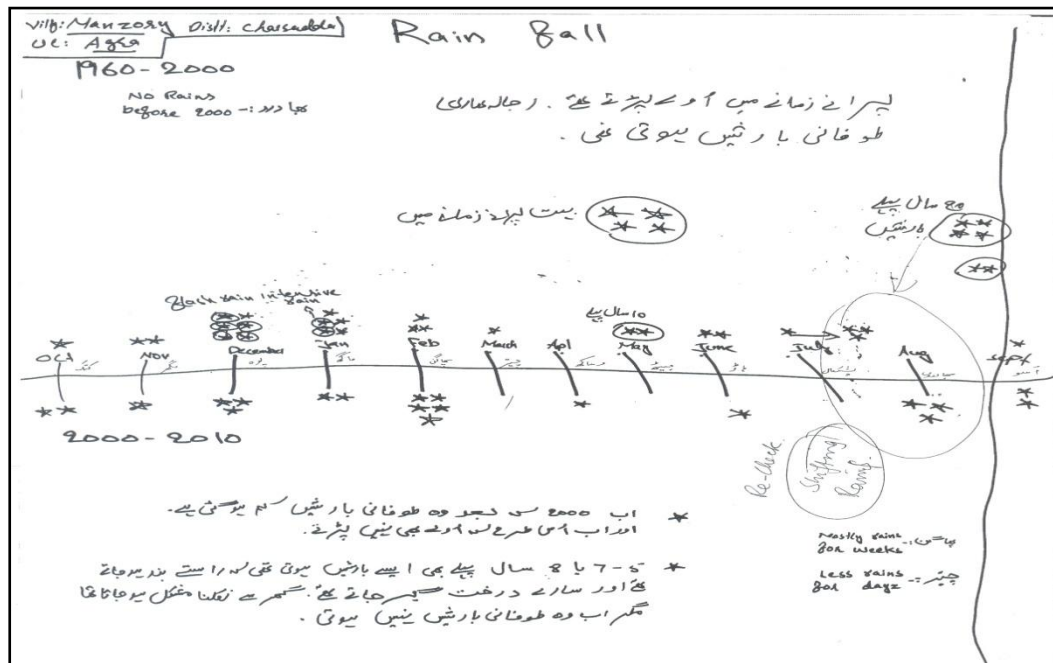 Vilg: Manzory Distt: Charsadda
UC: Agra
Rain fall
1960-2000
No Rains
before 2000 -: بھادرو
پرانے زمانے میں اولے پڑتے تھے. (جالہ ماری)
طوفانی بارشیں ہوتی تھی.
بہت پرانے زمانے میں
20 سال پہلے
بارشیں
flash rain Intensive
rain
10 سال پہلے
Oct Nov December Jan Feb March Apl May June July Aug Sept
2000-2010
Re-check
Shifting
Rains
اب 2000 کے بعد وہ طوفانی بارشیں کم ہو گئی ہے.
اور اب اس طرح کے اولے بھی نہیں پڑتے.
5-7 یا 8 سال پہلے بھی ایسے بارشیں ہوتی تھی کہ راستے بند ہو جاتے
تھے اور سارے درخت گھر جاتے تھے. گھر سے نکلنا مشکل ہو جاتا تھا
مگر اب وہ طوفانی بارشیں نہیں ہوتی.
Mostly rains
for weeks -: پھاگن
Less rains
for days -: چیتر